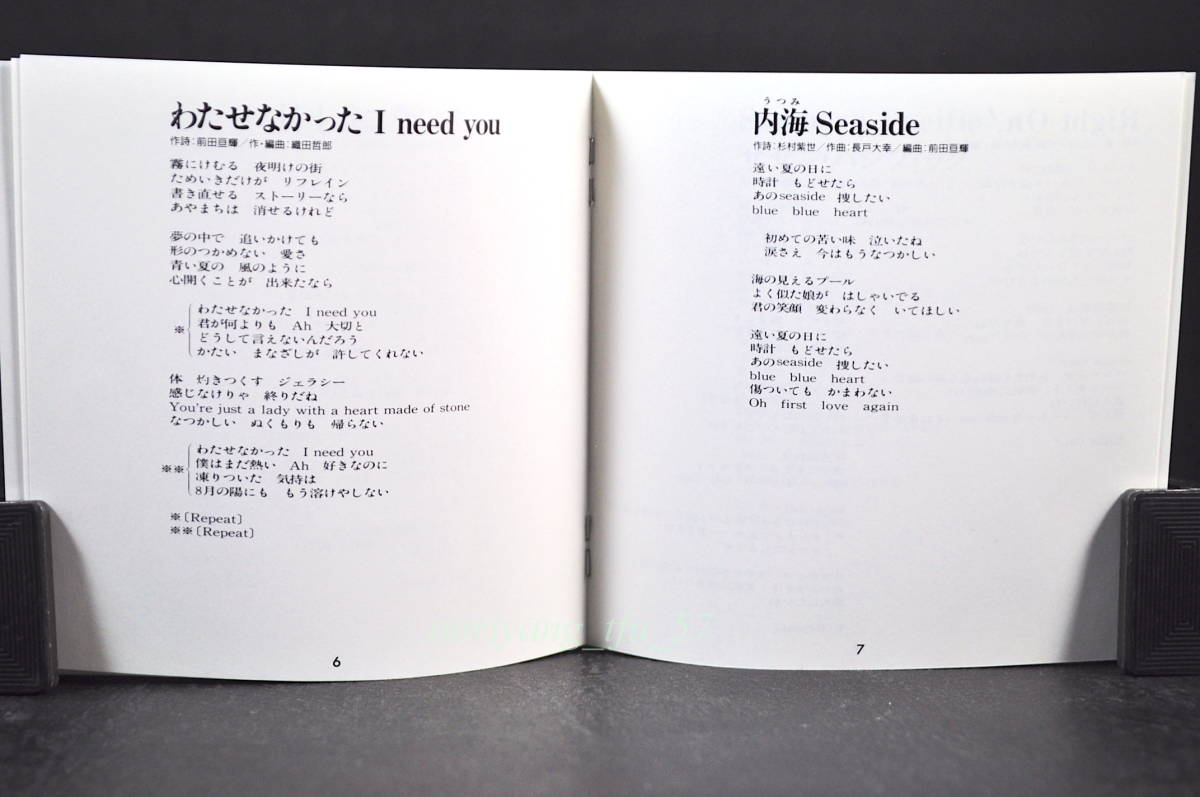 わたせなかった I need you
作詩：前田亘輝／作・編曲：織田哲郎
霧にけむる　夜明けの街
ためいきだけが　リフレイン
書き直せる　ストーリーなら
あやまちは　消せるけれど
夢の中で　追いかけても
形のつかめない　愛さ
青い夏の　風のように
心開くことが　出来たなら
わたせなかった　I need you
君が何よりも　Ah　大切と
※
どうして言えないんだろう
かたい　まなざしが　許してくれない
体　灼きつくす　ジェラシー
感じなけりゃ　終りだね
You're just a lady with a heart made of stone
なつかしい　ぬくもりも　帰らない
わたせなかった　I need you
僕はまだ熱い　Ah　好きなのに
※※
凍りついた　気持は
8月の陽にも　もう溶けやしない
※〔Repeat〕
※※〔Repeat〕
6
うつみ
内海 Seaside
作詩：杉村紫世／作曲：長戸大幸／編曲：前田亘輝
遠い夏の日に
時計　もどせたら
あのseaside　捜したい
blue　blue　heart
初めての苦い味　泣いたね
涙さえ　今はもうなつかしい
海の見えるプール
よく似た娘が　はしゃいでる
君の笑顔　変わらなく　いてほしい
遠い夏の日に
時計　もどせたら
あのseaside　捜したい
blue　blue　heart
傷ついても　かまわない
Oh　first　love　again
7